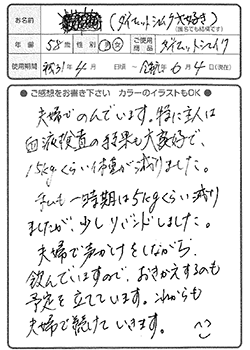 お名前 (ダイエットシェイク大好き)
(匿名でも結構です)
年齢 58才 性別 男・女 ご使用商品 ダイエットシェイク
使用期間 H31年4月 日頃 ~ 令和1年6月4日(現在)
● ご感想をお書き下さい カラーのイラストもOK ●
夫婦でのんでいます。特に主人は
血液検査の結果も大変好で、
15kgくらい体重が減りました。
私も一時期は5kgくらい減り
ましたが、少しリバンドしました。
夫婦で声かけをしながら、
飲んでいますので、おきかえするのも
予定を立てています。これからも
夫婦で続けていきます。